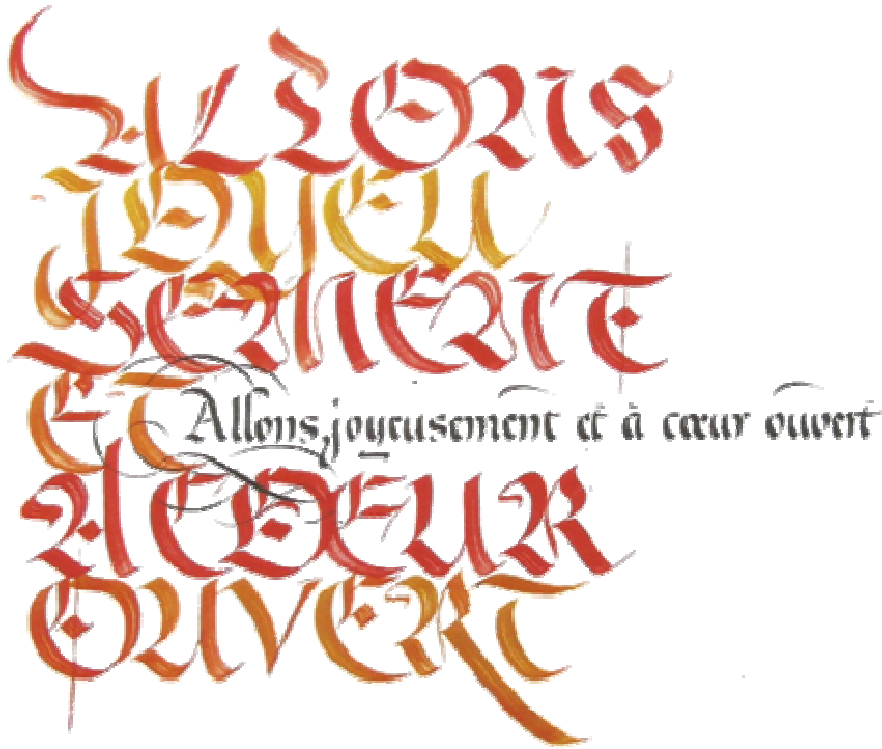 ALLONS
JOYEU
SEMENT
ET
Allons, joyeusement et à cœur ouvert
A COEUR
OUVERT